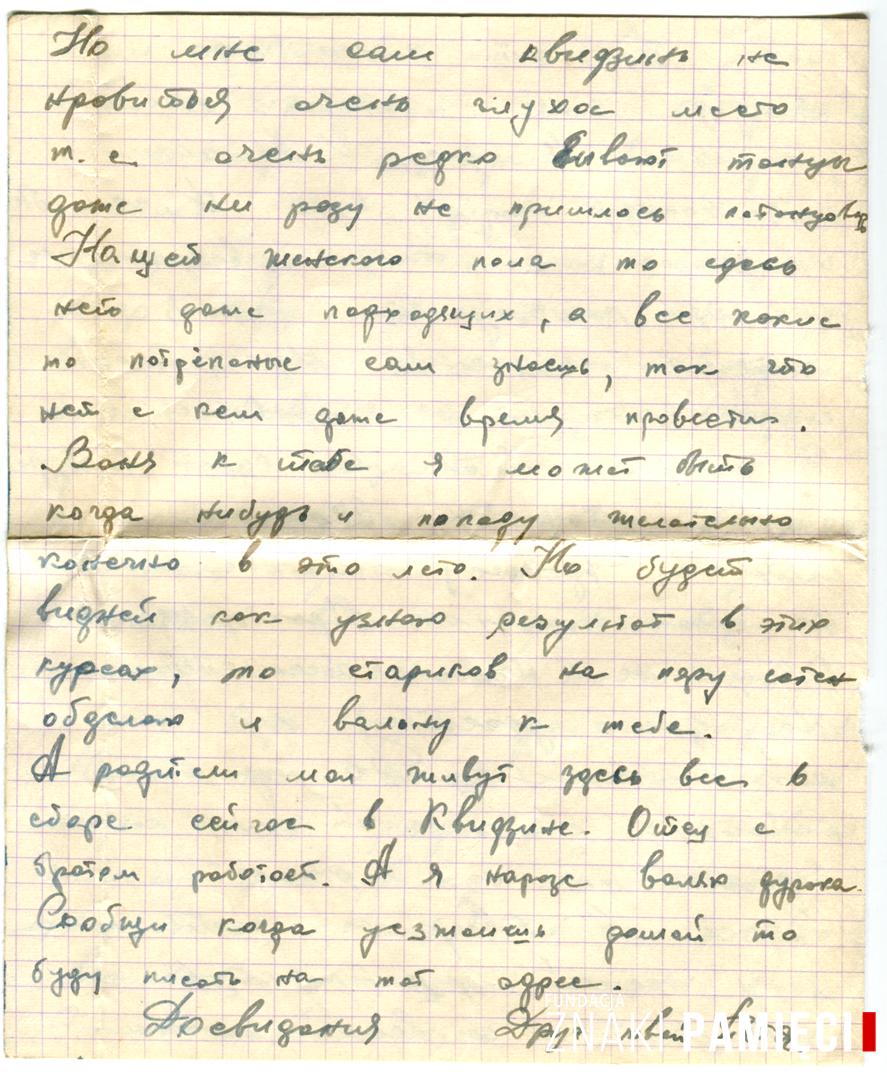 Но мне сам Квидзынь не
нравиться очень глухое место
т. е. очень редко бывают танцы
даже ни разу не пришлось потонцовать
На щет женского пола то здесь
нето даже подходящих, а все какие
то потрёпаные сам знаешь, так что
нет с кем даже время провести.
Ваня к тебе я может быть
когда нибудь и попаду желательно
конечно в это лето. Но будет
видней как узнаю результат в этих
курсах, то стариков на пару сотен
обделаю и валяну к тебе.
А родители мои живут здесь все в
сборе сейчас в Квидзине. Отец с
братом работает. А я наразе валяю дурака.
Сообщи когда уезжаишь домой то
буду писать на тот адрес.
Досвидания Друг твой
FUNDACJA
ZNAKI PAMIĘCI